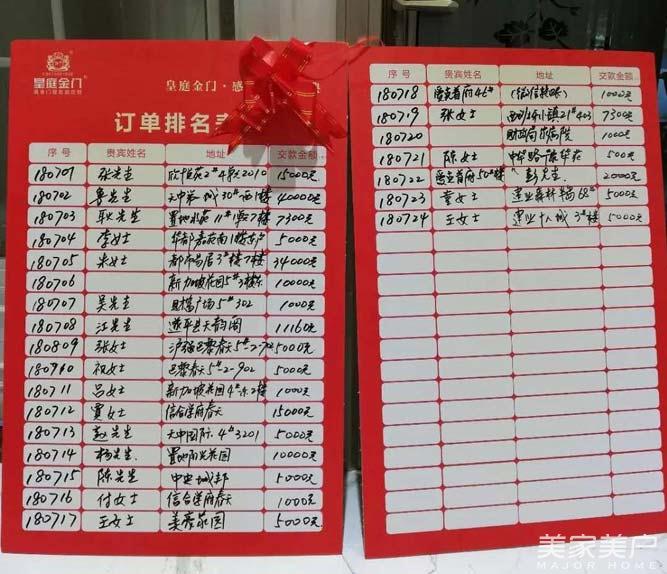 皇庭金门
皇庭金门·感
订单排名
序号 贵宾姓名 地址 交款金额
180701 张先生 欣恒苑2#4段2010 15000元
180702 鲁先生 天中第一城30#西1楼 40000元
180703 耿先生 置地花园11#2段7楼 7300元
180704 李女士 华都嘉苑南1楼东户 5000元
180705 朱女士 都市名居3#7楼 34000元
180706 新加坡花园5#3楼东 10000元
180707 吴先生 财富广场5#302 1000元
180708 江先生 遂平县天韵阁 11160元
180809 张女士 沪强巴黎春天5#-2-702 5000元
180910 祝女士 巴黎春天5#-2-902 5000元
180711 吕女士 新加坡花园4#东2楼 1000元
180712 贾女士 信合学府春天 15000元
180713 赵先生 天中国际4#3201 5000元
180714 杨先生 置地阳光花园 10000元
180715 陈先生 中央城邦 5000元
180716 付女士 信合学府春天 1000元
180717 王女士 美荐花园 5000元
序号 贵宾姓名 地址 交款金额
180718 爱克首府46# (微信转账) 1000元
180719 张女士 西湖小镇21#403 7300元
180720 财政局家属院 1000元
180721 陈女士 中华路一陈华苑 500元
180722 爱克首府50#楼 彭先生 2000元
180723 童女士 建业森林半岛68# 5000元
180724 王女士 建业十八城3#楼 5000元
美家美户
MAJOR HOME